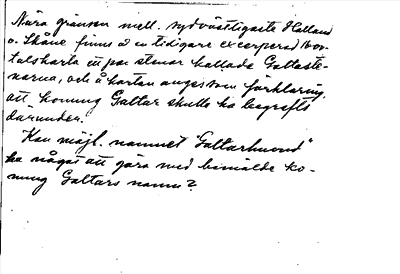 Nära gränsen mell. sydvästligaste Halland
o. Skåne finns å en tidigare excerperad 1600-
talskarta ett par stenar kallade Galtaste-
narna, och å kartan anges som förklaring,
att konung Galtar skulle ha begrafts
därunder.
Kan möjl. namnet "Galtarhuvud"
ha något att göra med bemälde ko-
nung Galtars namn?